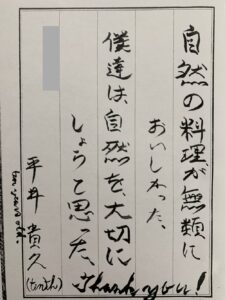 自然の料理が無頼に
おいしかった、
僕達は、自然を、大切に
しょうと思った、
Thank you!
平井貴久
(tenth)